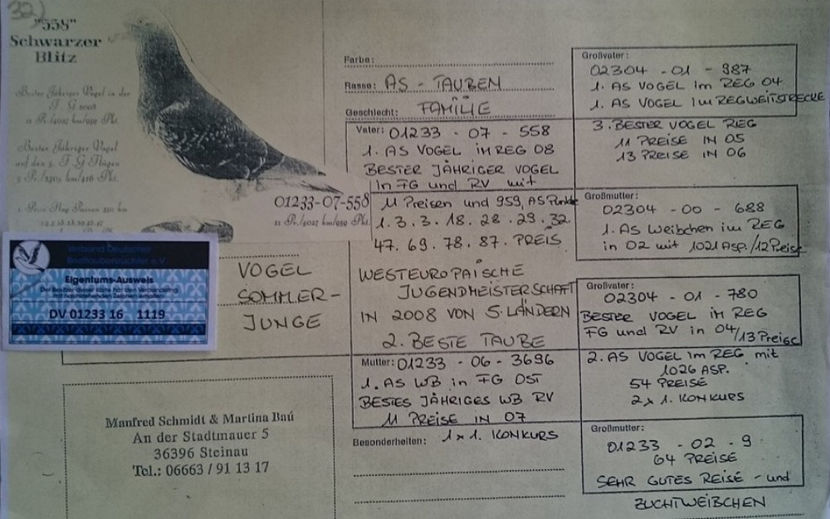 32)
"558"
Schwarzer
Blitz
Bester Jähriger Vogel in der
Bester Jähriger Vogel
01233-07-558
Verband Deutscher
Brieftaubenzüchter e.V.
Eigentums-Ausweis
DV 01233 16 1119
VOGEL
SOMMER-
JUNGE
Manfred Schmidt & Martina Baú
An der Stadtmauer 5
36396 Steinau
Tel.: 06663 / 91 13 17
Farbe:
Rasse: AS - TAUBEN
Geschlecht: FAMILIE
Vater: 01233 - 07 - 558
1. AS VOGEL im REG 08
BESTER JÄHRIGER VOGEL
in FG und RV mit
11 Preisen und 959, AS Punkte
1. 3. 3. 18. 28. 29. 32
47. 69. 78. 87. PREIS
WESTEUROPÄISCHE
JUGENDMEISTERSCHAFT
IN 2008 VON 5 LÄNDERN
2. BESTE TAUBE
Mutter: 01233 - 06 - 3696
1. AS WB in FG OST
BESTES JÄHRIGES WB RV
11 PREISE IN 07
Besonderheiten: 1 x 1. KONKURS
Großvater:
02304 - 01 - 987
1. AS VOGEL im REG 04
1. AS VOGEL im REG WEITSTRECKE
3. BESTER VOGEL REG
11 PREISE IN 05
13 PREISE IN 06
Großmutter:
02304 - 00 - 688
1. AS Weibchen im REG
in 02 mit 1021 Asp. / 12 Preise
Großvater:
02304 - 01 - 780
BESTER VOGEL im REG
FG und RV in 04 / 13 Preise
2. AS VOGEL im REG mit
1026 ASP.
54 PREISE
2 x 1. KONKURS
Großmutter:
01233 - 02 - 9
64 PREISE
SEHR GUTES REISE - und
ZUCHTWEIBCHEN